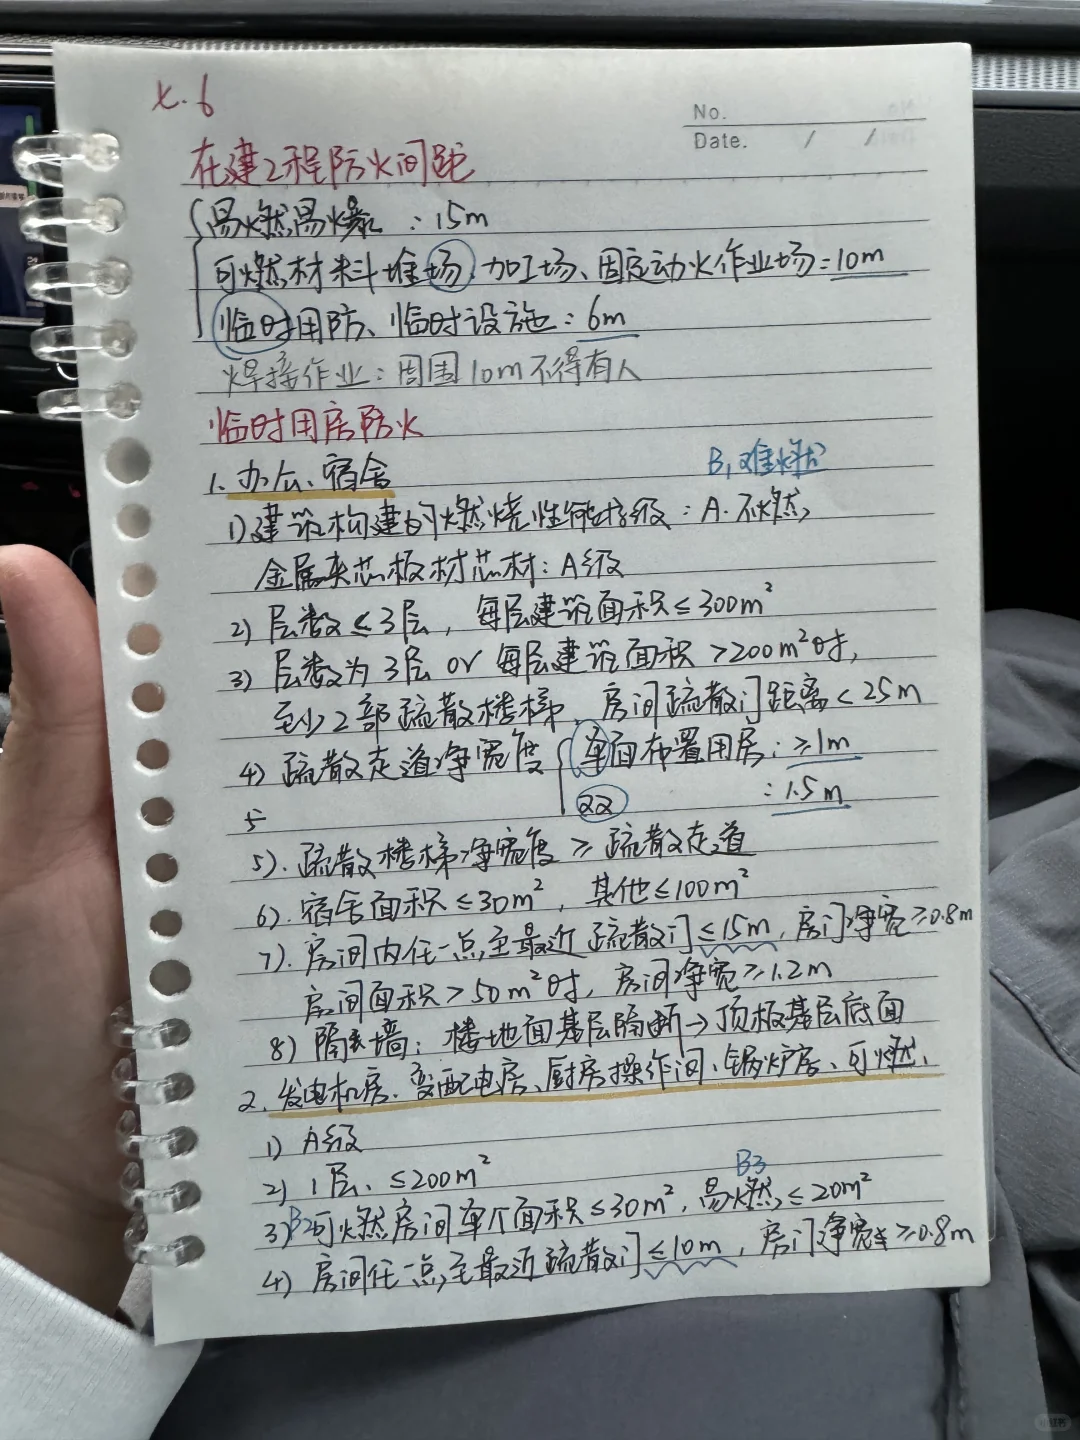 K.6
No.
Date. / /
在建工程防火间距
易燃易爆：15m
可燃材料堆场、加工场、固定动火作业场：10m
临时用防、临时设施：6m
焊接作业：周围10m不得有人
临时用房防火
1. 办公、宿舍
B₁难燃
1) 建筑构建的燃烧性能等级：A.不燃
金属夹芯板材芯材：A级
2) 层数≤3层，每层建筑面积≤300m²
3) 层数为3层 or 每层建筑面积>200m²时，
至少2部疏散楼梯，房间疏散门距离<25m
4) 疏散走道净宽度 单面布置用房：≥1m
双：1.5m
5
5). 疏散楼梯净宽度≥疏散走道
6). 宿舍面积≤30m²，其他≤100m²
7). 房间内任一点至最近疏散门≤15m，房门净宽≥0.8m
房间面积>50m²时，房间净宽≥1.2m
8) 隔墙：楼地面基层隔断→顶板基层底面
2. 发电机房、变配电房、厨房操作间、锅炉房、可燃、
1) A级
2) 1层、≤200m²
B3
3) B2可燃房间单个面积≤30m²，易燃≤20m²
4) 房间任一点至最近疏散门≤10m，房门净宽≥0.8m